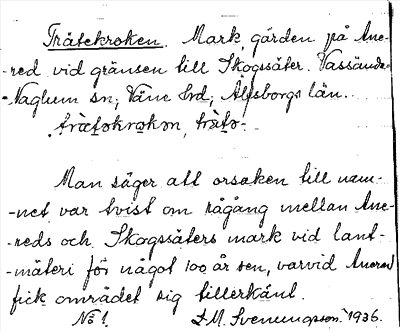 Trätekroken. Mark, gården på Ane-
-red vid gränsen till Skogssäter. Vassända-
-Naglum sn, Väne hd, Älfsborgs län.
träto-
Man säger att orsaken till nam-
-net var tvist om rågång mellan Ane-
-reds och Skogssäters mark vid lant-
-mäteri för något 100 år sen, varvid Anered
fick området sig tillerkänt.
No 1. L.M. Svenungsson 1936.